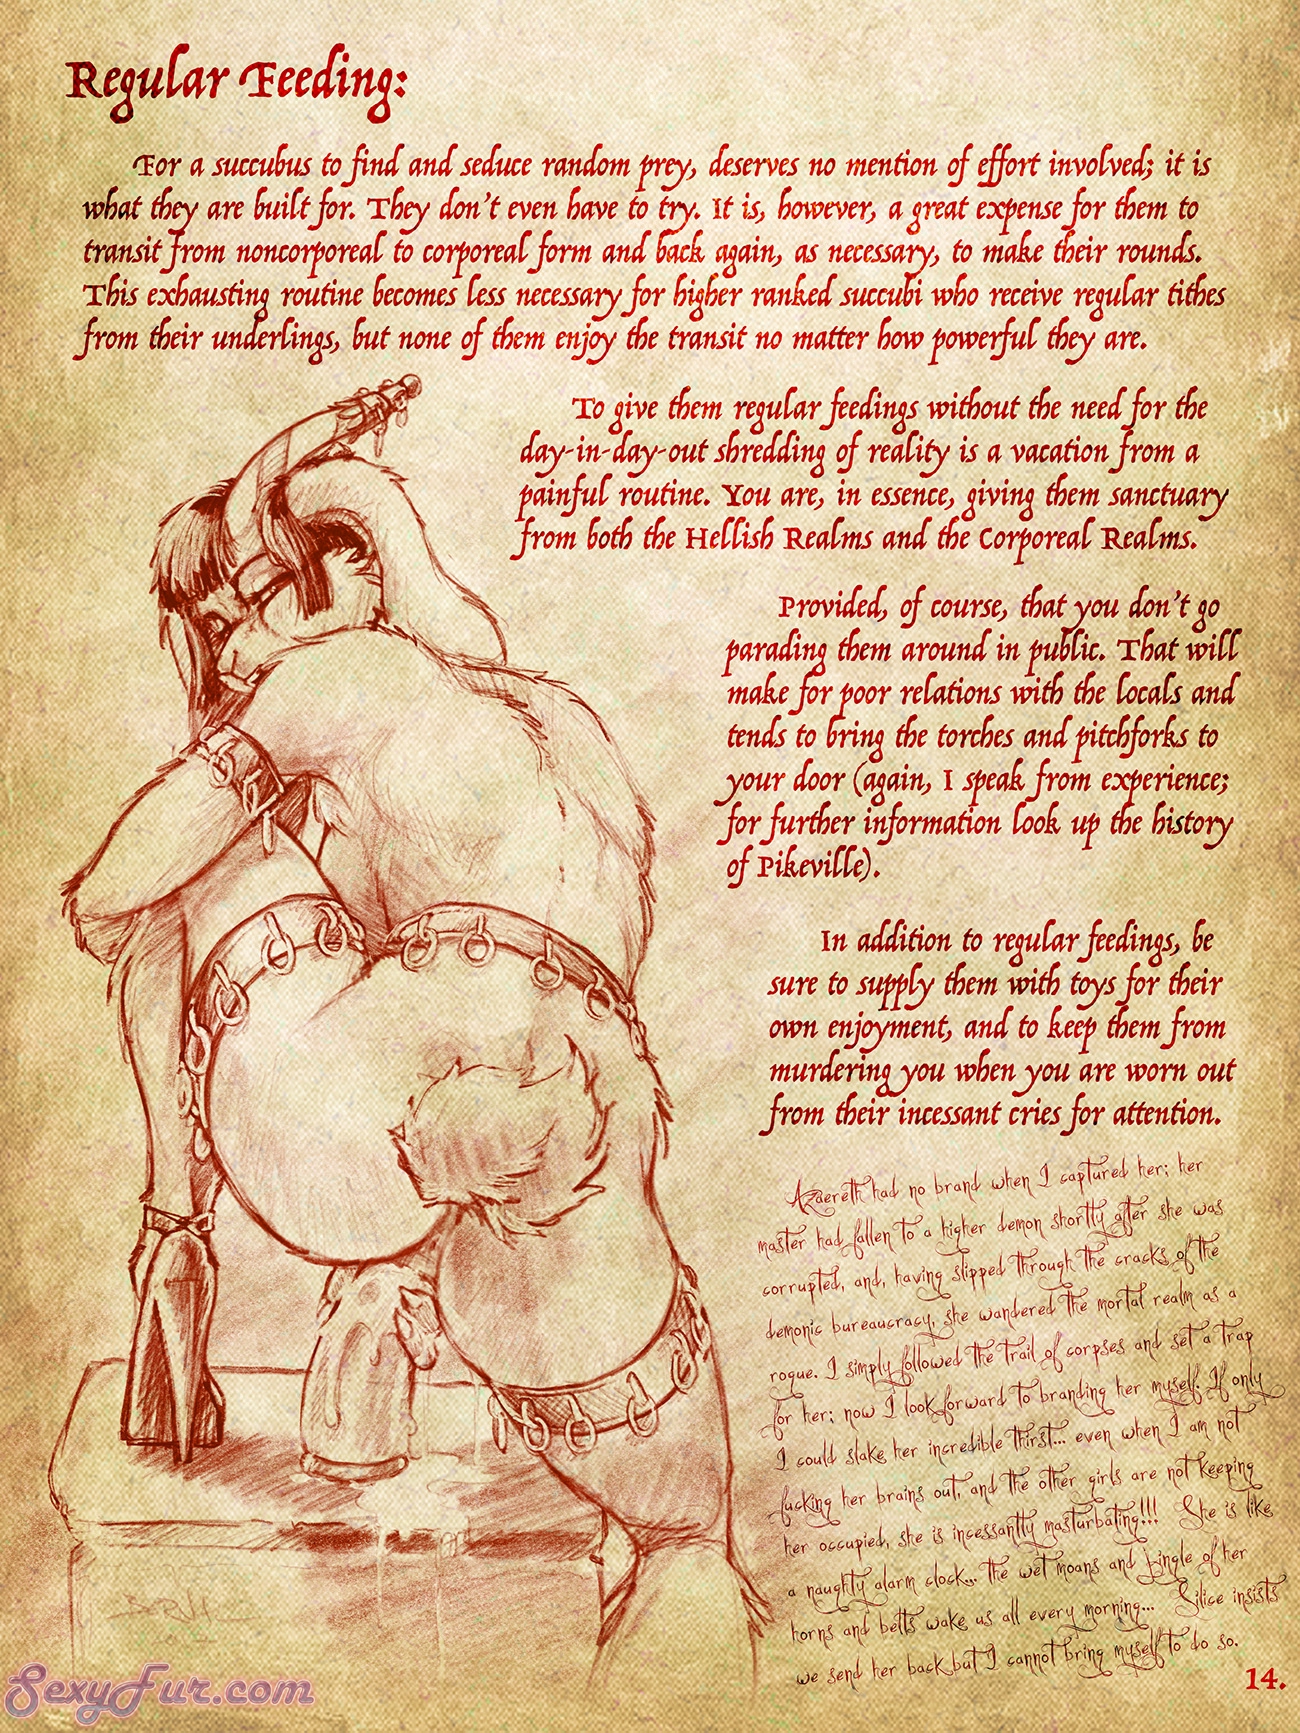 Regular Feeding:
For a succubus to find and seduce random prey, deserves no mention of effort involved; it is
what they are built for. They don't even have to try. It is, however, a great expense for them to
transit from noncorporeal to corporeal form and back again, as necessary, to make their rounds.
This exhausting routine becomes less necessary for higher ranked succubi who receive regular tithes
from their underlings, but none of them enjoy the transit no matter how powerful they are.
To give them regular feedings without the need for the
day-in-day-out shredding of reality is a vacation from a
painful routine. You are, in essence, giving them sanctuary
from both the Hellish Realms and the Corporeal Realms.
Provided, of course, that you don't go
parading them around in public. That will
make for poor relations with the locals and
tends to bring the torches and pitchforks to
your door (again, I speak from experience;
for further information look up the history
of Pikeville).
In addition to regular feedings, be
sure to supply them with toys for their
own enjoyment, and to keep them from
murdering you when you are worn out
from their incessant cries for attention.
Azaereth had no brand when I captured her; her
master had fallen to a higher demon shortly after she was
corrupted, and, having slipped through the cracks of the
demonic bureaucracy, she wandered the mortal realm as a
rogue. I simply followed the trail of corpses and set a trap
for her; now I look forward to branding her myself. If only
I could slake her incredible thirst... even when I am not
fucking her brains out, and the other girls are not keeping
her occupied, she is incessantly masturbating!!! She is like
a naughty alarm clock... the wet moans and jingle of her
horns and belts wake us all every morning... Silice insists
we send her back but I cannot bring myself to do so.
14.
SexyFur.com